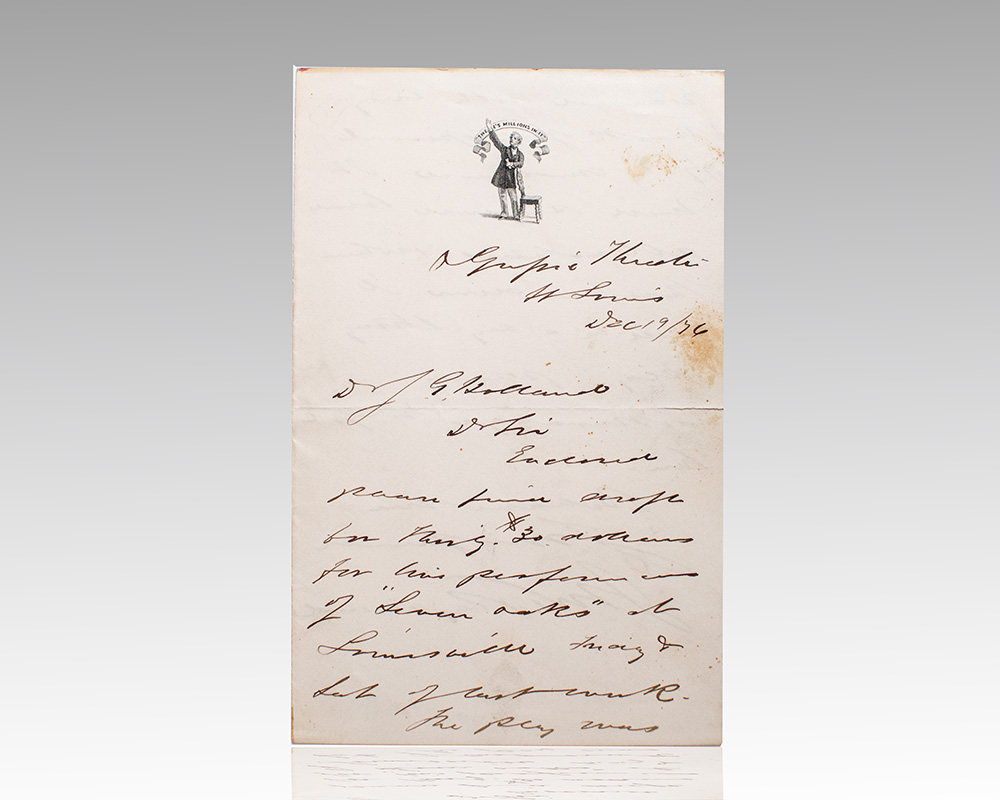 THERE'S MILLIONS IN IT
Olympic Theatre
St Louis
Dec 19/76
Dr J G. Holland
Dr Sir
Enclosed
please find draft
for Thirty $30. dollars
for two performances
of "Seven oaks" at
Louisville Friday &
Sat of last week-
The play was